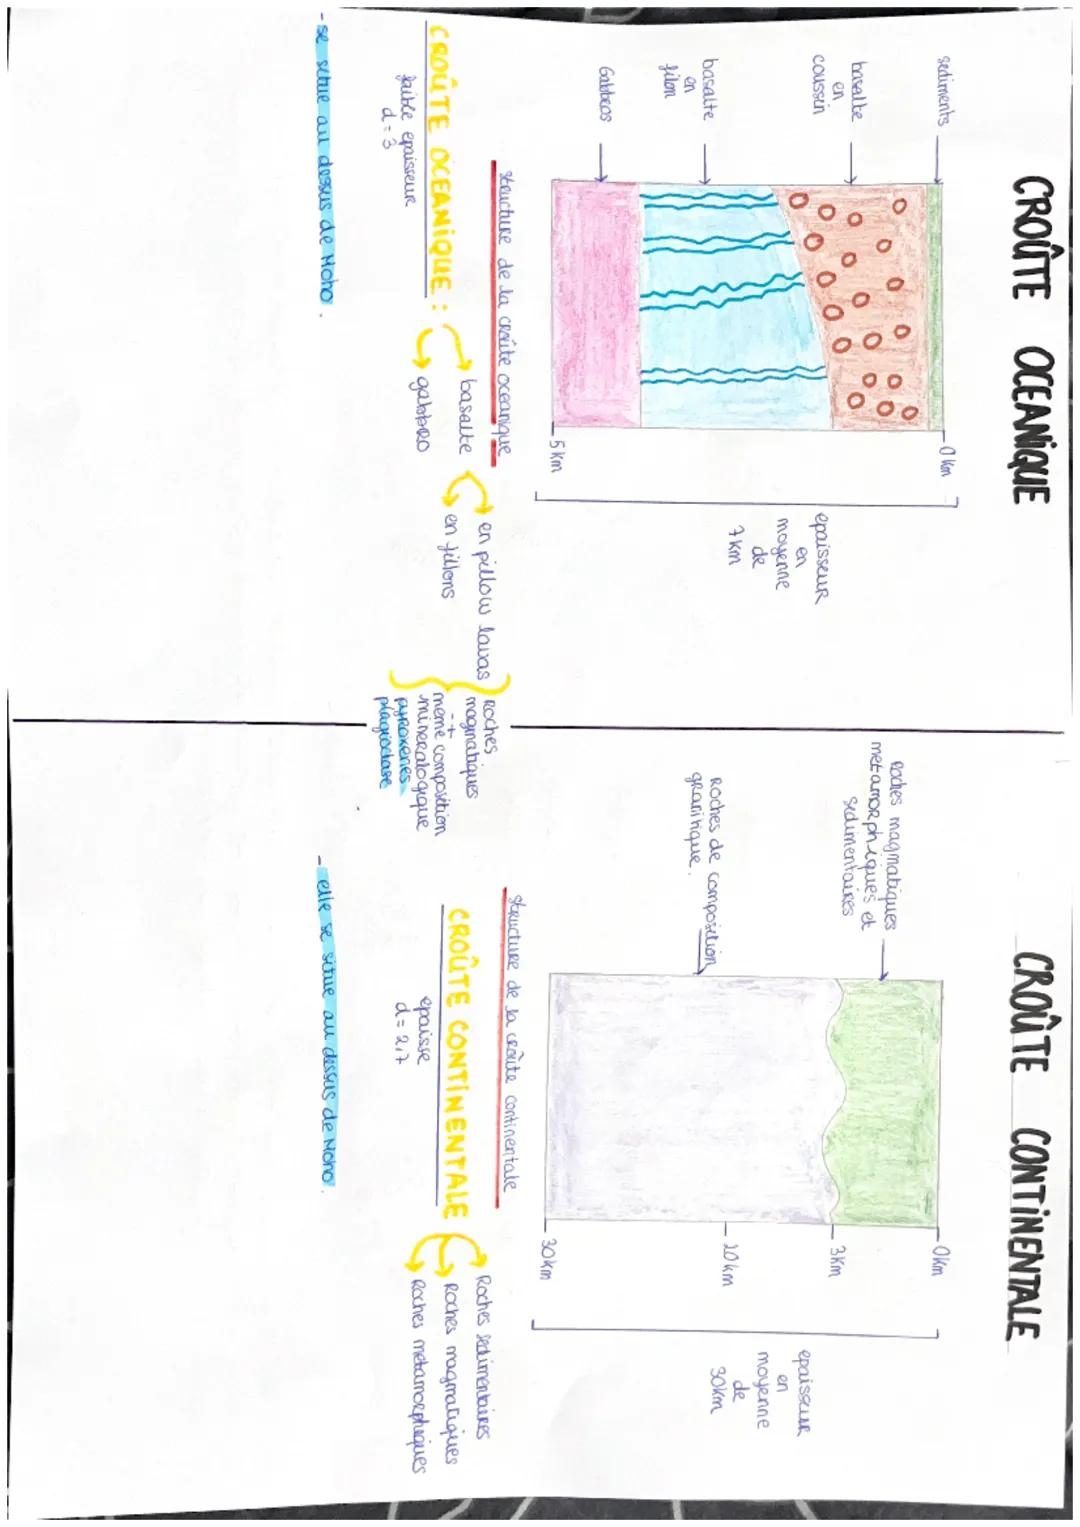 CROÛTE OCEANIQUE
sediments
basalte
en
coussin
basalte
en
filon
Gabbros
0 km
5 km
epaisseur
en
moyenne
de
7 km
structure de la croûte oceanique
CROÛTE OCEANIQUE :
faible epaisseur
d = 3
basalte
gabbro
en pillow lavas
en fillons
Roches
magmatiques
+
même composition
mineralogique
pyroxenes
plagioclase
- se situe au dessus de Moho.
CROÛTE CONTINENTALE
Roches magmatiques
metamorphiques et
sedimentaires
Roches de composition
granitique.
0km
3km
10km
30km
epaisseur
en
moyenne
de
30km
structure de la croûte continentale
CROÛTE CONTINENTALE
epaisse
d = 2,7
Roches sedimentaires
Roches magmatiques
Roches metamorphiques
- elle se situe au dessus de Moho.